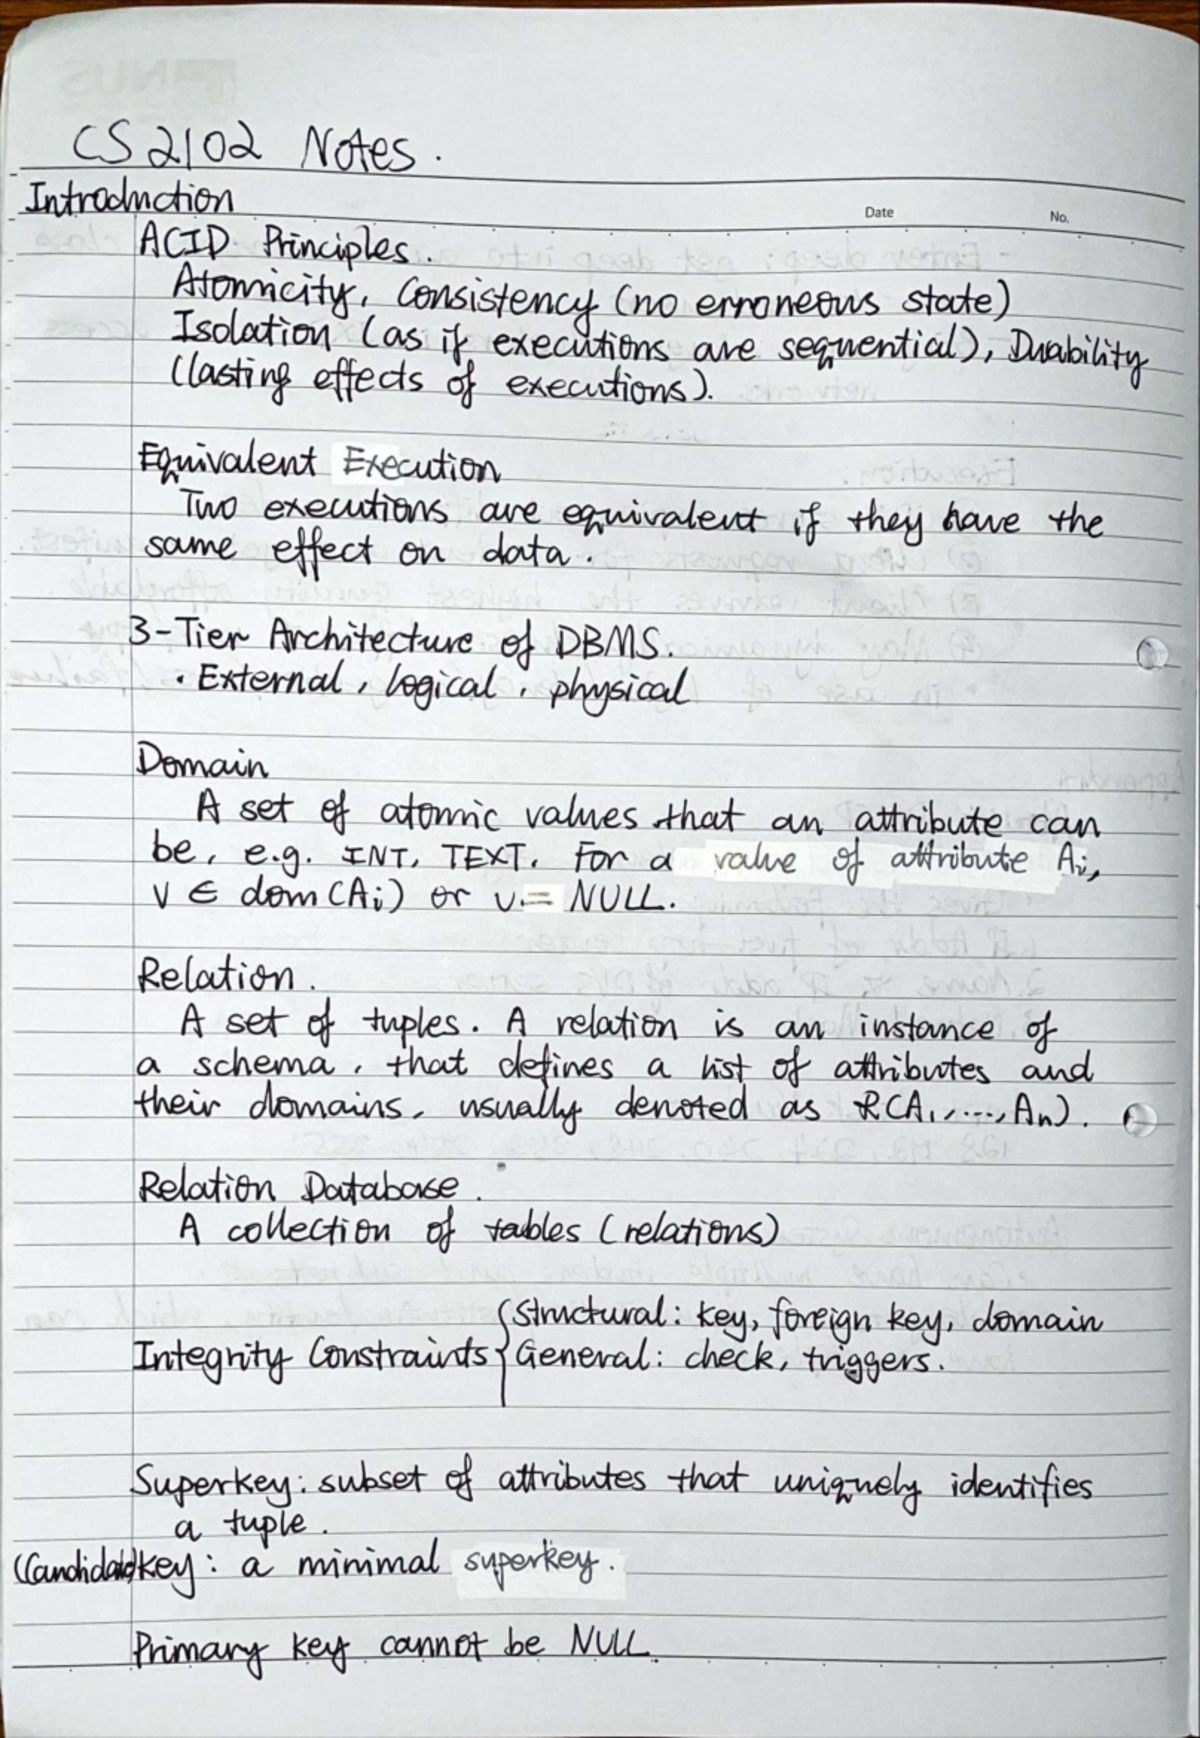 CS2102 Notes.
Introduction
Date No.
ACID Principles.
Atomicity, Consistency (no erroneous state)
Isolation (as if executions are sequential), Duability
(lasting effects of executions).
Equivalent Execution
Two executions are equivalent if they have the
same effect on data.
3-Tier Architecture of DBMS.
· External, logical, physical
Domain
A set of atomic values that an attribute can
be, e.g. INT, TEXT. For a value of attribute Ai,
v ∈ dom(Ai) or v = NULL.
Relation.
A set of tuples. A relation is an instance of
a schema, that defines a list of attributes and
their domains, usually denoted as R(A1,...,An).
Relation Database.
A collection of tables (relations)
Integrity Constraints { Structural: key, foreign key, domain
General: check, triggers.
Superkey: subset of attributes that uniquely identifies
a tuple.
(Candidate) key: a minimal superkey.
Primary key cannot be NULL.